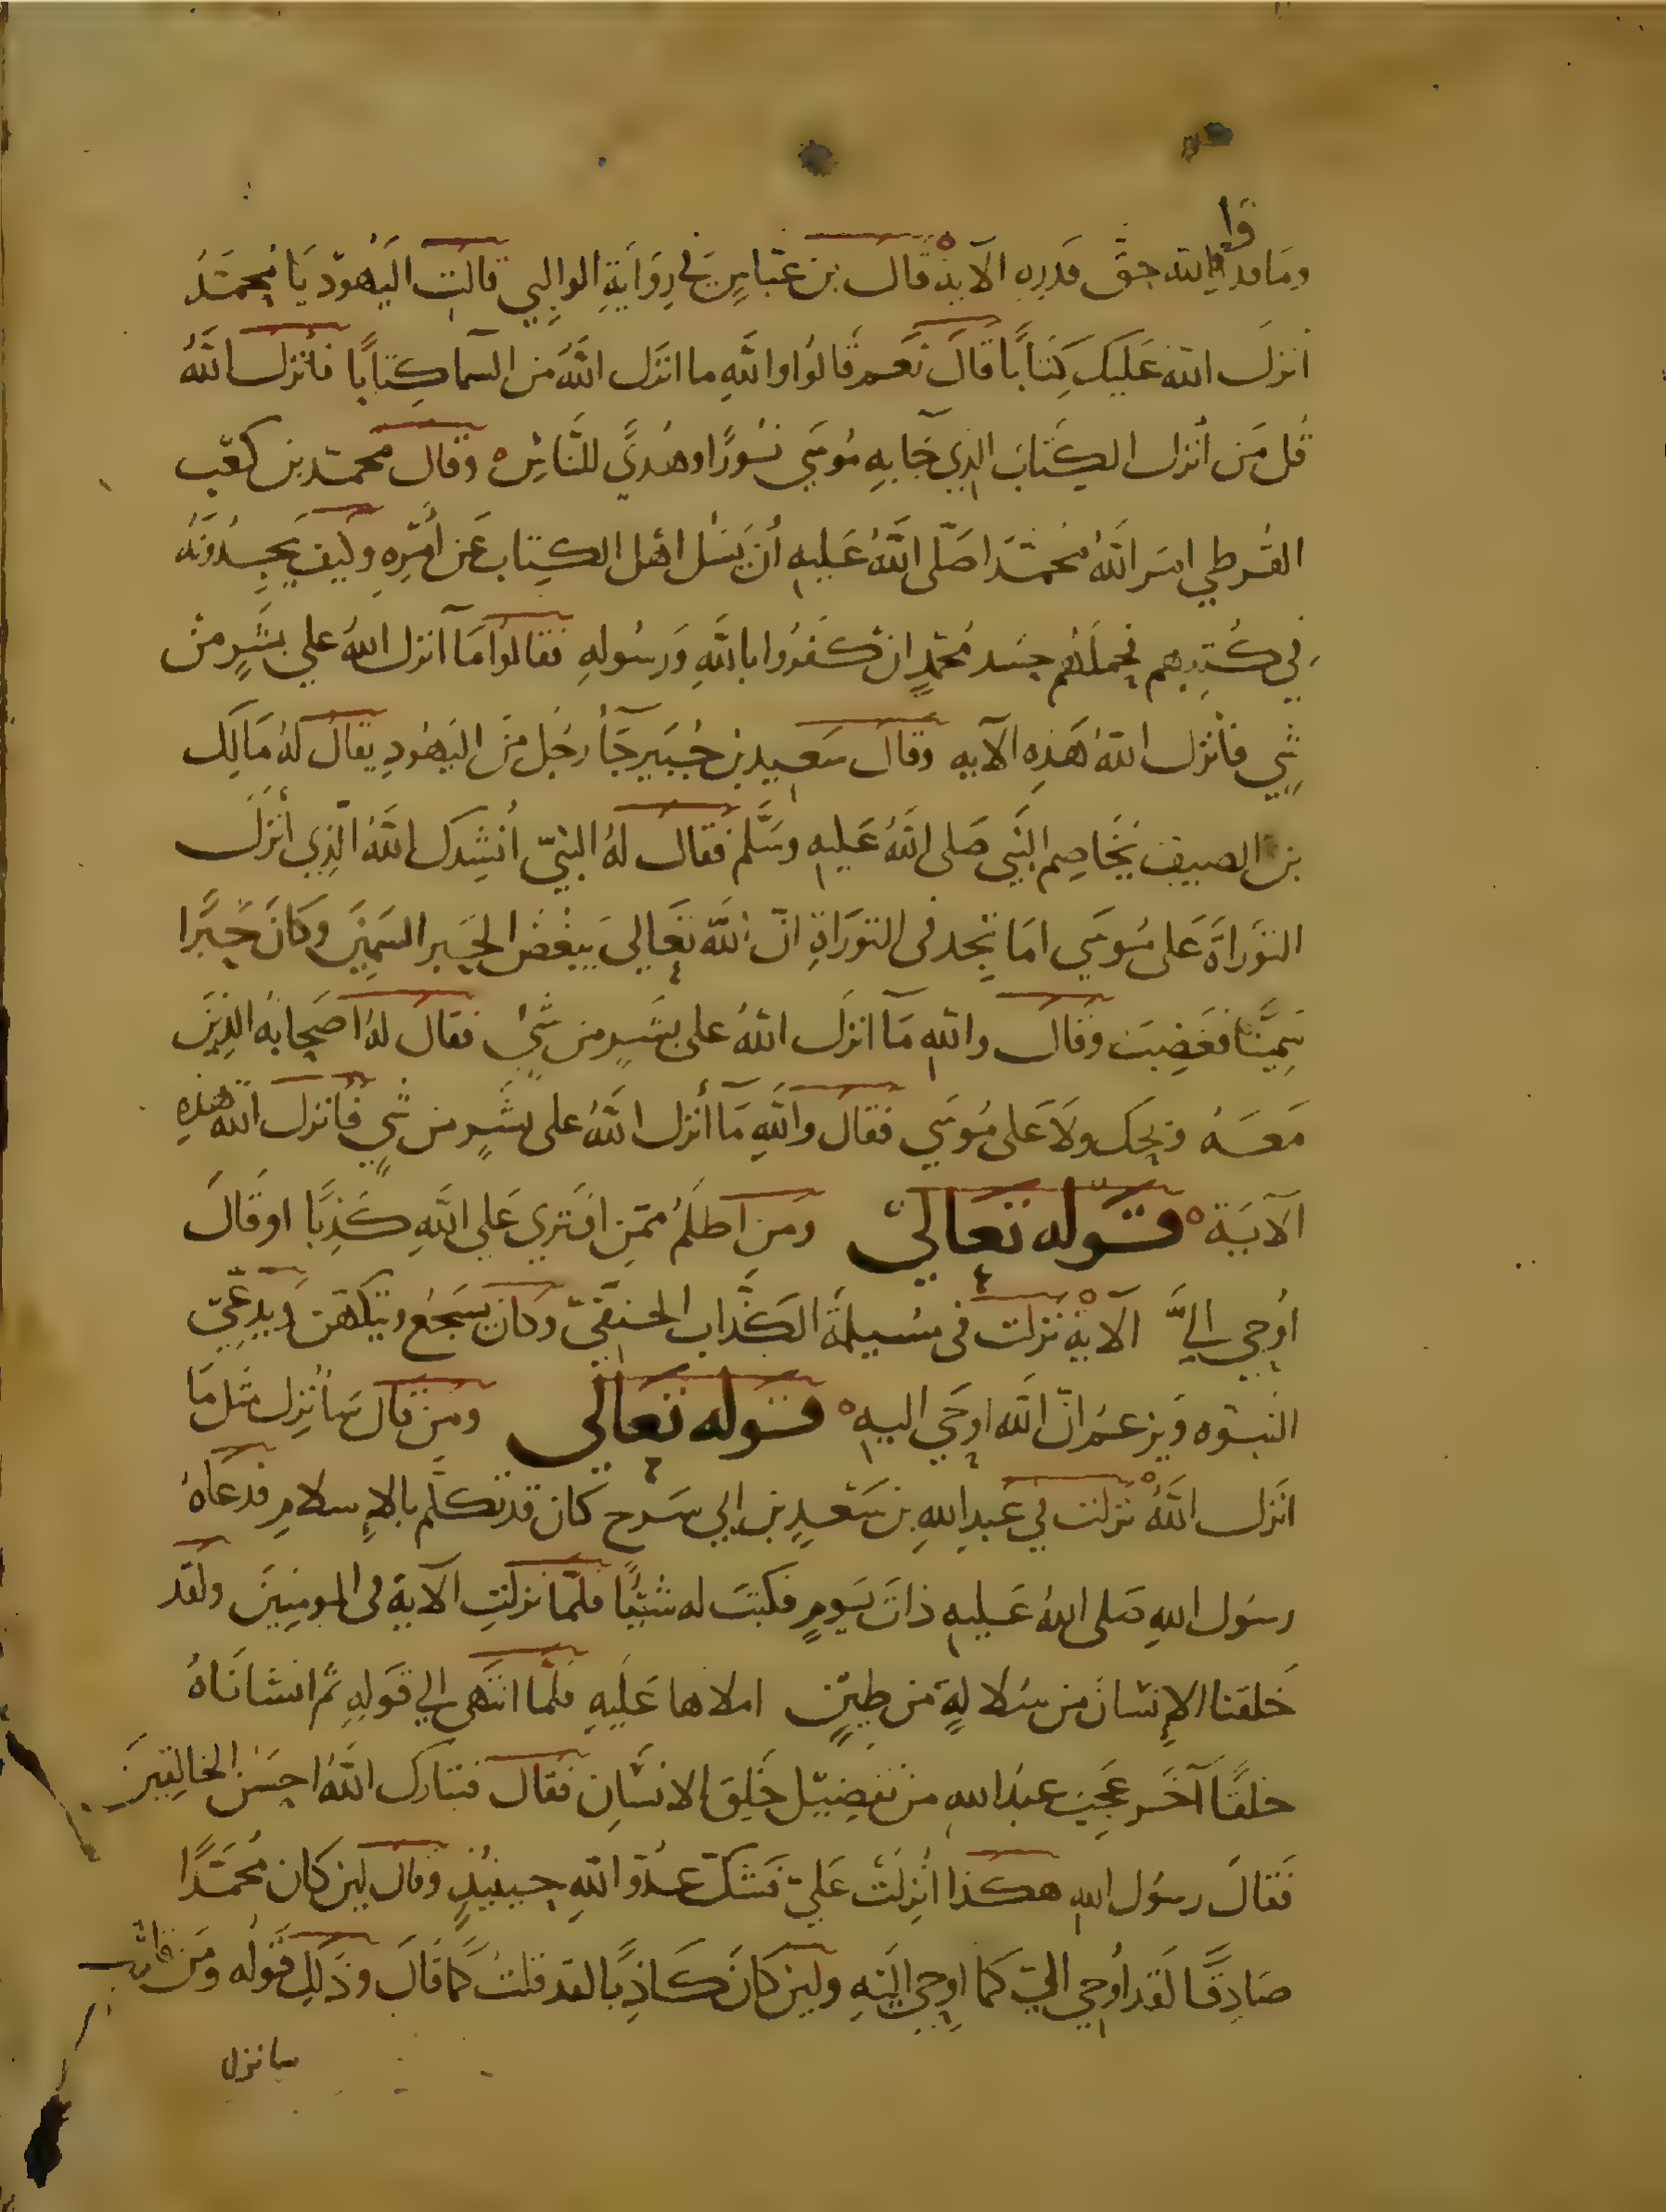 وما قدروا الله حق قدره الآية قال بن عباس في رواية الوالبي قالت اليهود يا محمد
انزل الله عليك كتابا قال نعم قالوا والله ما انزل الله من السما كتابا فانزل الله
قل من أنزل الكتاب الذي جا به موسي نورا وهدي للناس وقال محمد بن كعب
القرطي امر الله محمدا صلى الله عليه أن يسل اهل الكتاب عن أمره وكيف يجدونه
في كتبهم فحملهم حسد محمد ان كفروا بالله ورسوله فقالوا ما انزل الله علي بشر من
شي فأنزل الله هذه الآيه وقال سعيد بن جبير جآ رجل من اليهود يقال له مالك
بن الصيف يخاصم النبي صلى الله عليه وسلم فقال له النبي أنشدك الله الذي أنزل
التوراة على موسي اما تجد فى التوراة ان الله تعالي يبغض الحبر السمين وكان حبرا
سمينا فغضب وقال والله ما انزل الله على بشر من شي فقال له اصحابه الذين
معه ويحك ولا على موسي فقال والله ما أنزل الله على بشر من شي فأنزل الله هذه
الآية قوله تعالي ومن اظلم ممن افتري علي الله كذبا او قال
أوحي الي الآية نزلت فى مسيلمة الكذاب الحنفي وكان يسجع ويتكهن ويدعي
النبوه ويزعم ان الله اوحي اليه قوله تعالي ومن قال سأنزل مثل ما
انزل الله نزلت في عبد الله بن سعد بن ابي سرح كان قد تكلم بالإسلام فدعاه
رسول الله صلى الله عليه ذات يوم فكتب له شئيا فلما نزلت الآية فى المومنين ولقد
خلقنا الإنسان من سلالة من طين املاها عليه فلما انتهى الي قوله ثم انشاناه
خلقا آخر عجب عبد الله من تفضيل خلق الانسان فقال فتبارك الله احسن الخالقين
فقال رسول الله هكذا أنزلت علي فشك عدو الله حينيذ وقال لين كان محمدا
صادقا لقد أوحي الي كما اوحي اليه ولين كان كاذبا لقد قلت كما قال وذلك قوله ومن قال
سانزل